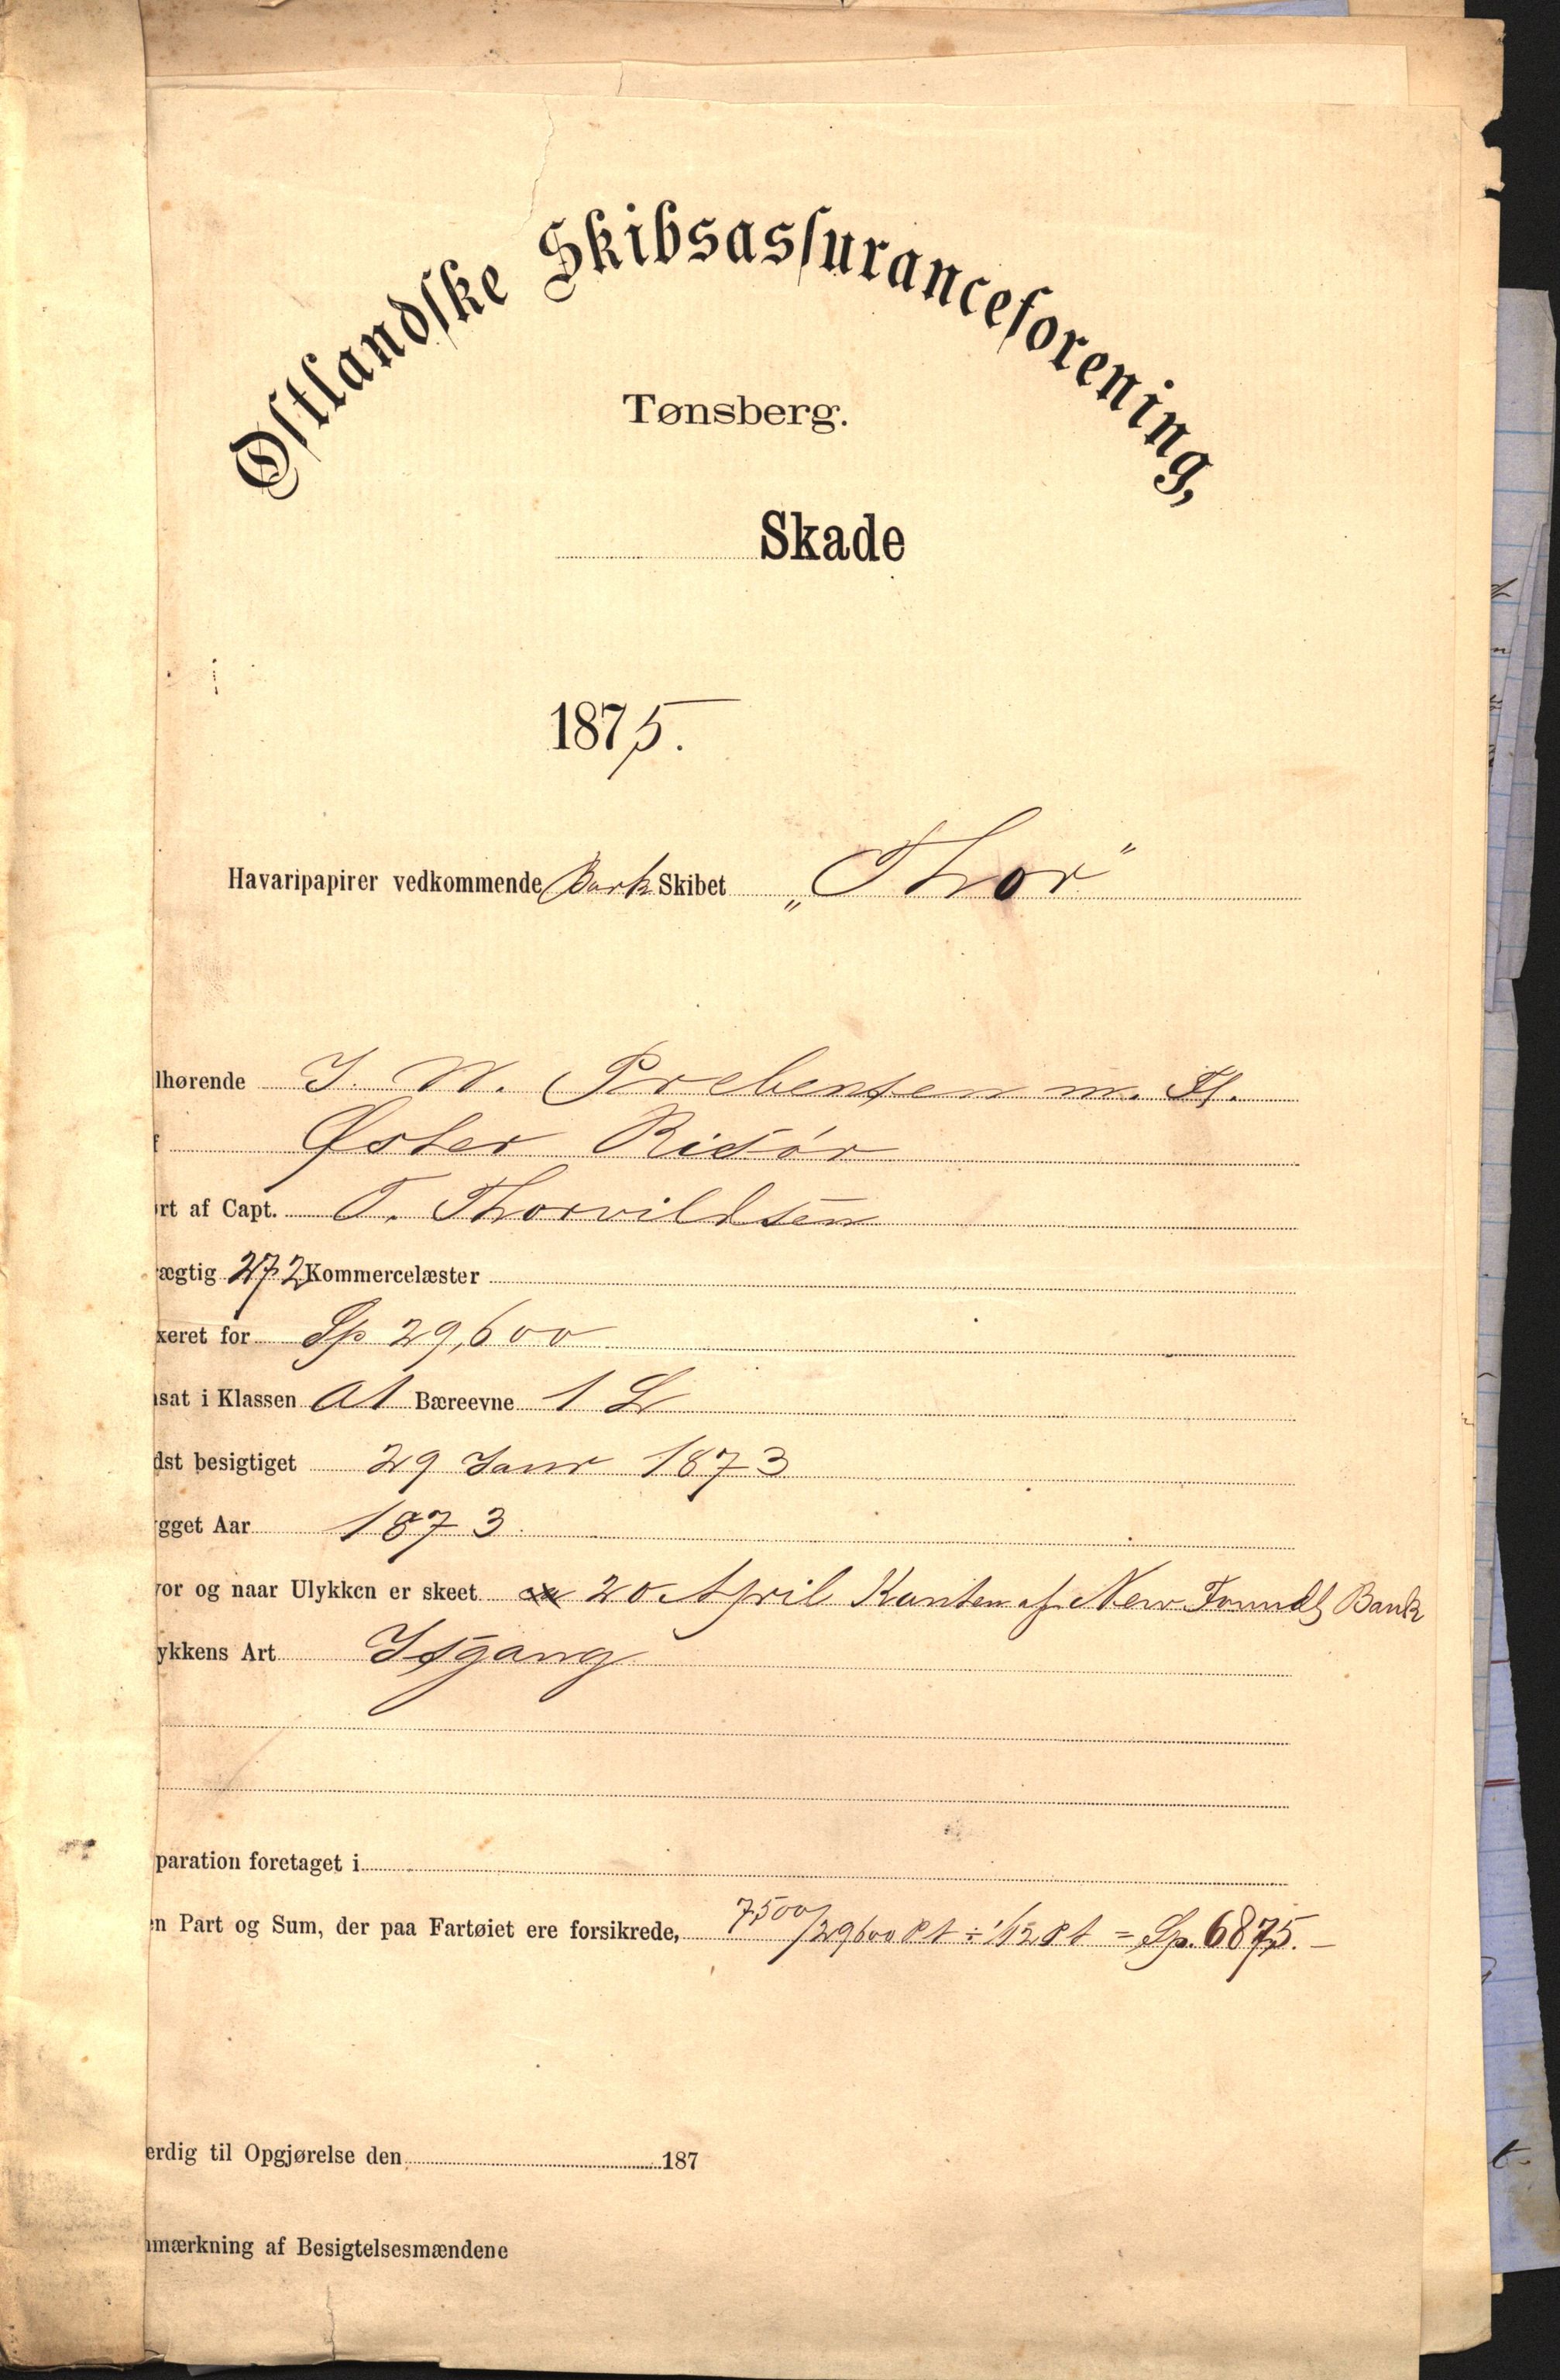 Østlandske Skibsassuranceforening,
Tønsberg.
Skade
1875.
Havaripapirer vedkommende Bark Skibet „Thor"
lhørende J. W. Prebensen m. Fl.
Øster Risør
rt af Capt. T. Thorvildsen
ægtig 272 Kommercelæster
xeret for Sp 29,600
sat i Klassen A1 Bæreevne 1 L
dst besigtiget 29 Janr 1873
gget Aar 1873.
or og naar Ulykken er skeet 20 April Kanten af New Foundl Bank
ykkens Art Isgang
paration foretaget i
n Part og Sum, der paa Fartøiet ere forsikrede, 7500/29600 Pt ÷ 1/12 Pt = Sp. 6875.–
erdig til Opgjørelse den 187
mærkning af Besigtelsesmændene